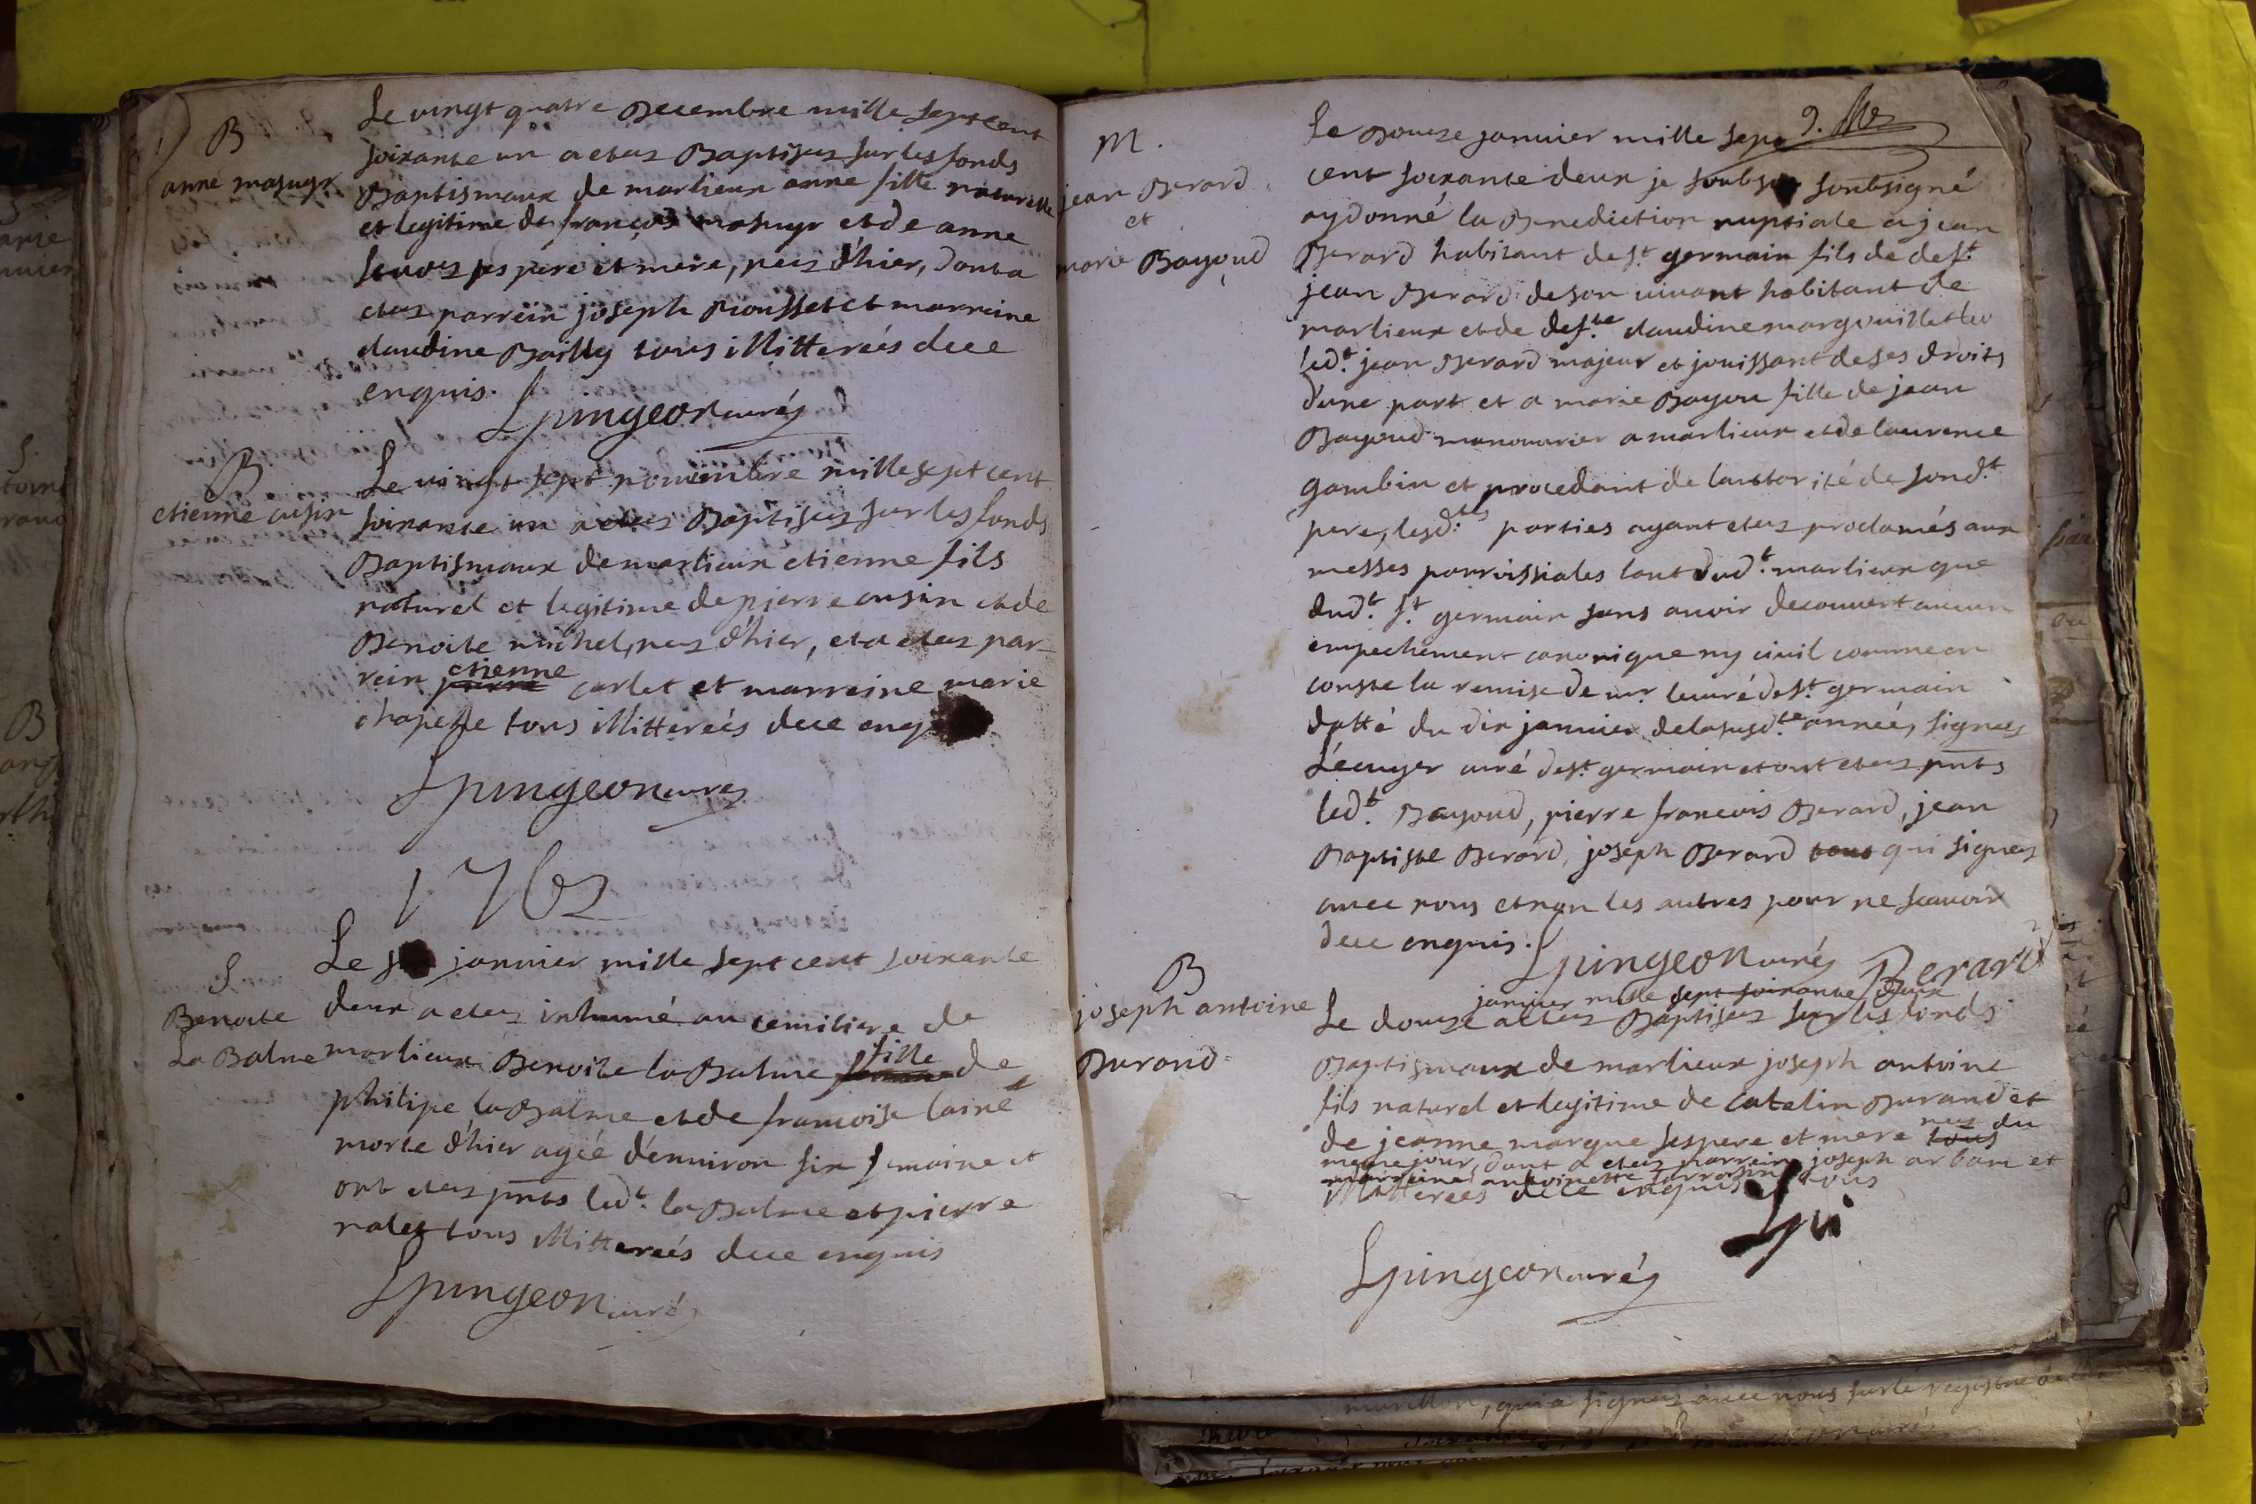 B
anne masuyr
Le vingt quatre Decembre mille sept cent
soixante un a etez Baptisez sur les fonds
Baptismaux de marlieux anne fille naturelle
et legitime de françois masuyr et de anne
ses pere et mere, nez d'hier, dont a
etez parrein joseph Mousset et marreine
claudine Bailly tous illitterés de ce
enquis.
Spingeon curéz
B
etienne cusin
Le vingt sept novembre mille sept cent
soixante un a etez Baptisez sur les fonds
Baptismaux de marlieux etienne fils
naturel et legitime de pierre cusin et de
Benoite michel, nez d'hier, et a etez par-
rein pierre etienne carlet et marreine marie
chapelle tous illitterés de ce enq
Spingeon curéz
1762
S.
Benoite
La Balme
Le janvier mille sept cent soixante
deux a etez inhumé au cemitiere de
marlieux Benoite la Balme fille de
philipe la Balme et de francoise lainé
morte d'hier agée d'environ six semaine et
ont etez pnts led.t la Balme et pierre
nalet tous illitterés de ce enquis
Spingeon curéz
9.
M.
jean Berard
et
marie Bayoud
Le Douze janvier mille sept
cent soixante deux je soubs soubsigné
ay donné la Benediction nuptiale a jean
Berard habitant de s.t germain fils de def.t
jean Berard de son vivant habitant de
marlieux et de def.te claudine margouillet
led.t jean Berard majeur et jouissant de ses droits
d'une part et a marie Bayou fille de jean
Bayoud manouvrier a marlieux et de laurence
gambin et procedant de lauttorité de sond.t
pere, lesd.tes parties ayant etez proclamés aux
messes parroissiales tant dud.t marlieux que
dud.t s.t germain sans avoir decouvert aucun
empechement canonique ny civil comme en
conste la remise de mr le curé de s.t germain
datté du dix janvier de la susd.te année, signez
Lécuyer curé de s.t germain et ont etez pnts
led.t Bayoud, pierre francois Berard, jean
Baptiste Berard, joseph Berard tous qui signez
avec nous et non les autres pour ne scavoir
de ce enquis.
Spingeon curéz Berard
B
joseph antoine
Durand
janvier mille sept soixante deux
Le douze a etez Baptisez sur les fonds
Baptismaux de marlieux joseph antoine
fils naturel et legitime de Catelin Durand et
de jeanne marque ses pere et mere tous nez du
meme jour, dont a etez parrein joseph arban et
marreine antoinette tous
illitterées de ce enquis
Spi
Spingeon curéz
, qui a signez avec nous sur le registre